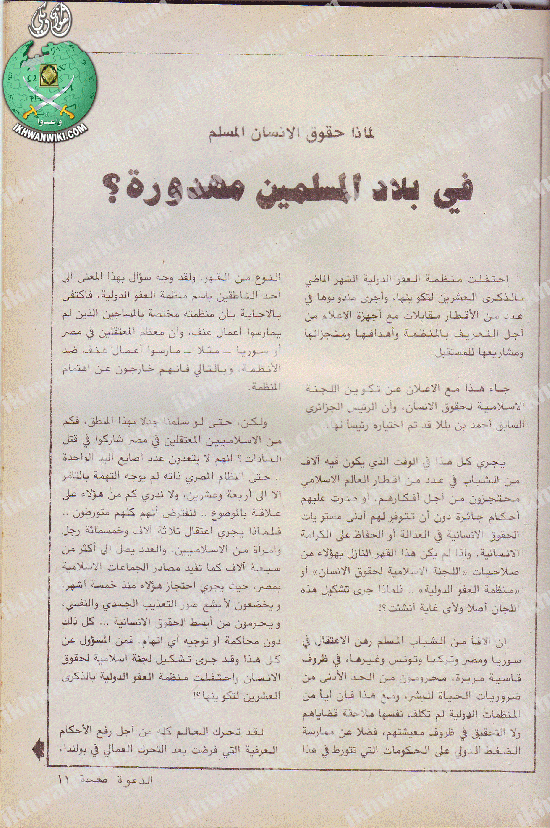 لماذا حقوق الانسان المسلم
في بلاد المسلمين مهدورة؟
احتفلت منظمة العفو الدولية الشهر الماضي
بالذكرى العشرين لتكوينها، وأجرى مندوبوها في
عدد من الأقطار مقابلات مع أجهزة الاعلام من
أجل التعريف بالمنظمة وأهدافها ومنجزاتها
ومشاريعها للمستقبل.
جاء هذا مع الاعلان عن تكوين اللجنة
الاسلامية لحقوق الانسان، وأن الرئيس الجزائري
السابق أحمد بن بللا قد تم اختياره رئيساً لها.
يجري كل هذا في الوقت الذي يكون فيه آلاف
من الشباب في عدد من اقطار العالم الاسلامي
محتجزون من أجل أفكارهم، او صدرت عليهم
أحكام جائرة دون أن تتوفر لهم أدنى مستويات
الحقوق الانسانية في العدالة أو الحفاظ على الكرامة
الانسانية، واذا لم يكن هذا القهر النازل بهؤلاء من
صلاحيات «اللجنة الاسلامية لحقوق الانسان» أو
«منظمة العفو الدولية».. فلماذا جرى تشكيل هذه
اللجان أصلا ولأى غاية أنشئت؟!
ان آلافاً من الشباب المسلم رهن الاعتقال في
سوريا ومصر وتركيا وتونس وغيرها، في ظروف
قاسية مريرة، محرومون من الحد الأدنى من
ضروريات الحياة للبشر، ومع هذا فان أياً من
المنظمات الدولية لم تكلف نفسها ملاحقة قضاياهم
ولا التحقيق في ظروف معيشتهم، فضلا عن ممارسة
الضغط الدولى على الحكومات التي تتورط في هذا
النوع من القهر. ولقد وجه سؤال بهذا المعنى الى
أحد الناطقين باسم منظمة العفو الدولية، فاكتفى
بالاجابة بأن منظمته مختصة بالمساجين الذين لم
يمارسوا أعمال عنف، وأن معظم المعتقلين في مصر
أو سوريا ــ مثلا ــ مارسوا أعمال عنف ضد
الأنظمة. وبالتالي فانهم خارجون عن اهتمام
المنظمة.
ولكن، حتى لو سلمنا جدلا بهذا المنطق، فكم
من الاسلاميين المعتقلين في مصر شاركوا في قتل
السادات؟ انهم لا يتعدون عدد اصابع اليد الواحدة
.. حتى النظام المصري ذاته لم يوجه التهمة بالتآمر
الا الى أربعة وعشرين، ولا ندري كم من هؤلاء على
علاقة بالموضوع.. لنفترض أنهم كلهم متورطون..
فلماذا يجري اعتقال ثلاثة آلاف وخمسمائة رجل
وامرأة من الاسلاميين. والعدد يصل الى أكثر من
سبعة آلاف كما تفيد مصادر الجماعات الاسلامية
بمصر، حيث يجري احتجاز هؤلاء منذ خمسة اشهر،
ويخضعون لأبشع صور التعذيب الجسدي والنفسي،
ويحرمون من أبسط الحقوق الانسانية... كل ذلك
دون محاكمة أو توجيه أي اتهام. فمن المسؤول عن
كل هذا وقد جرى تشكيل لجنة اسلامية لحقوق
الانسان واحتفلت منظمة العفو الدولية بالذكرى
العشرين لتكوينها؟!
لقد تحرك العالم كله من أجل رفع الأحكام
العرفية التي فرضت بعد التحرك العمالي في بولندا،
الدعوة صفحة ١١
إخوان ويكي
وأعدوا
IKHWANWIKI.COM
ikhwanwiki.com